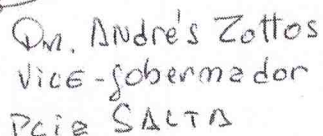 Dr. Andrés Zottos
Vice-gobernador
Pcia SALTA